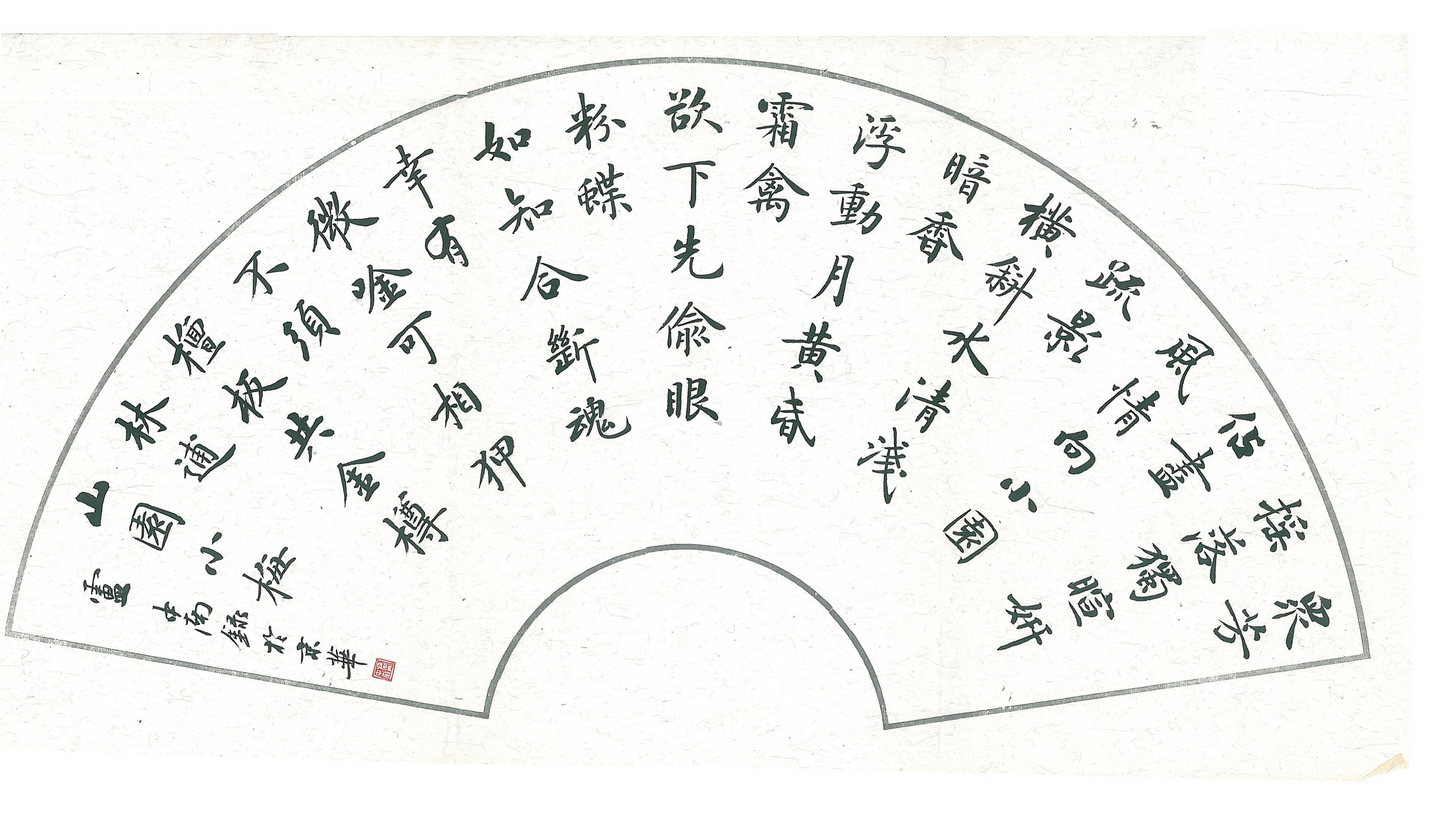 眾芳
搖落獨暄妍
佔盡
風情向小園
疏影
橫斜水清淺
暗香
浮動月黃昏
霜禽
欲下先偷眼
粉蝶
如知合斷魂
幸有
微唫可相狎
不須
檀板共金樽
林逋
山園小梅
盧中南錄於京華